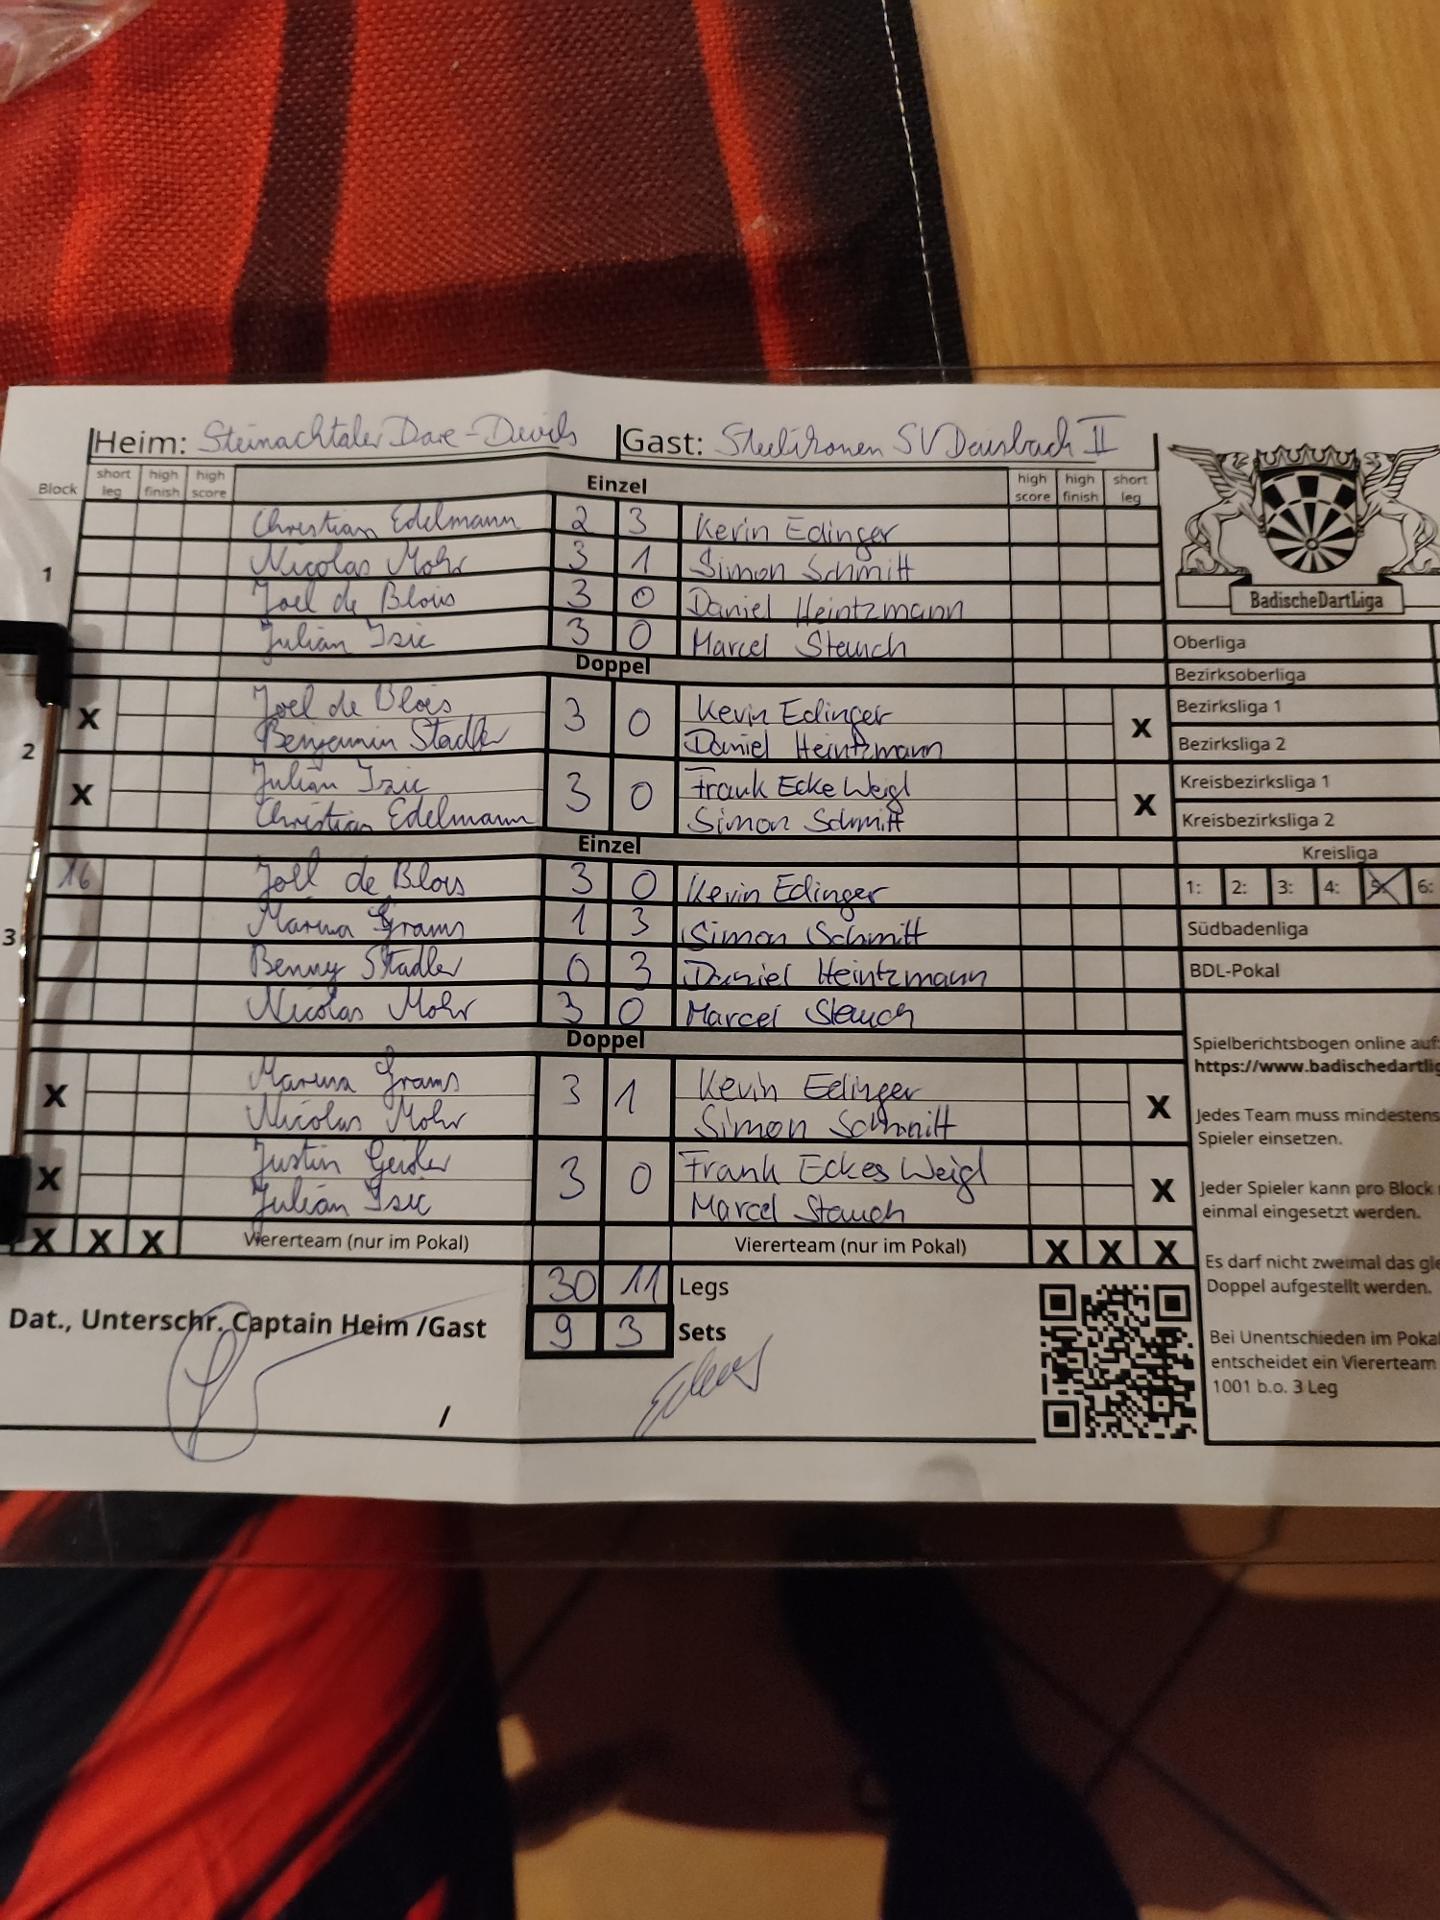 Heim: Steinachtaler Dare-Devils Gast: Steeldronen SV Daisbach II
Block short leg high finish high score Einzel high score high finish short leg
Christian Edelmann 2 3 Kevin Edinger
1 Nicolas Mohr 3 1 Simon Schmitt
Joel de Blois 3 0 Daniel Heintzmann
Julian Isic 3 0 Marcel Stauch
Doppel
X Joel de Blois 3 0 Kevin Edinger X
Benjamin Stadler Daniel Heintzmann
2
X Julian Isic 3 0 Frank Ecke Weigl X
Christian Edelmann Simon Schmitt
Einzel
16 Joel de Blois 3 0 Kevin Edinger
3 Marina Grams 1 3 Simon Schmitt
Benny Stadler 0 3 Daniel Heintzmann
Nicolas Mohr 3 0 Marcel Stauch
Doppel
X Marina Grams 3 1 Kevin Edinger X
Nicolas Mohr Simon Schmitt
X Justin 3 0 Frank Eckes Weigl X
Julian Isic Marcel Stauch
X X X Viererteam (nur im Pokal) Viererteam (nur im Pokal) X X X
30 11 Legs
9 3 Sets
Dat., Unterschr. Captain Heim /Gast
/
BadischeDartLiga
Oberliga
Bezirksoberliga
Bezirksliga 1
Bezirksliga 2
Kreisbezirksliga 1
Kreisbezirksliga 2
Kreisliga
1: 2: 3: 4: 5: 6:
Südbadenliga
BDL-Pokal
Spielberichtsbogen online auf:
https://www.badischedartlig
Jedes Team muss mindestens
Spieler einsetzen.
Jeder Spieler kann pro Block
einmal eingesetzt werden.
Es darf nicht zweimal das gle
Doppel aufgestellt werden.
Bei Unentschieden im Pokal
entscheidet ein Viererteam
1001 b.o. 3 Leg